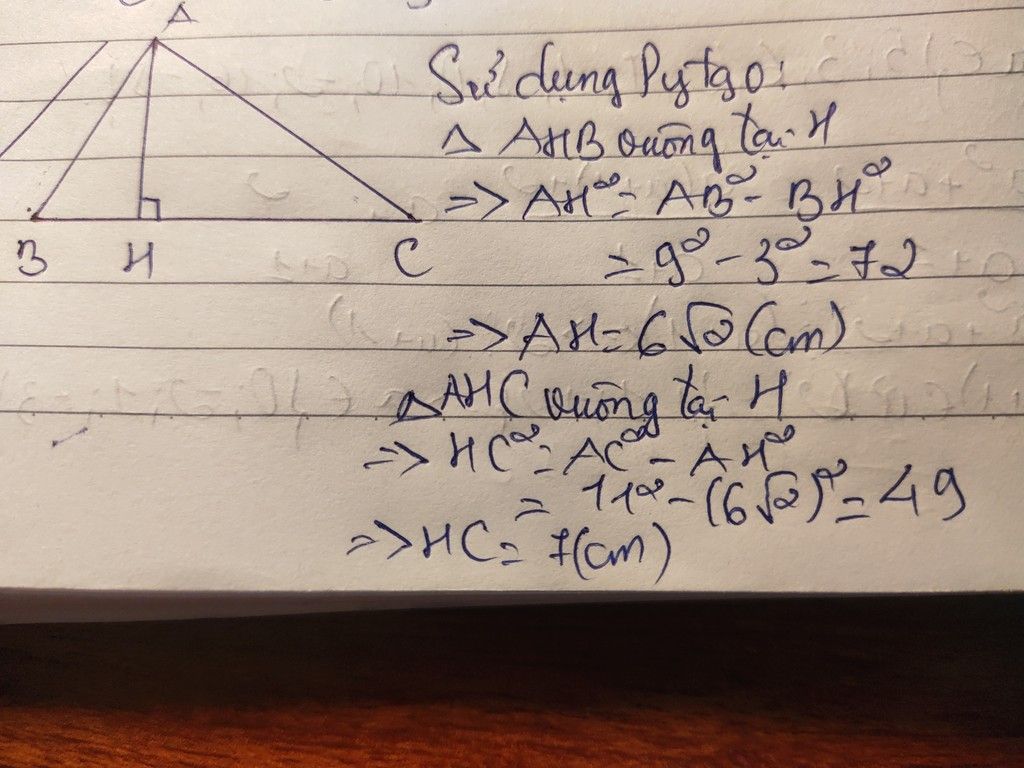 A
B H C
Sử dụng Pytgo:
Δ AHB vuông tại H
=> AH² = AB² - BH²
= 9² - 3² = 72
=> AH = 6√2 (cm)
Δ AHC vuông tại H
=> HC² = AC² - AH²
= 11² - (6√2)² = 49
=> HC = 7(cm)